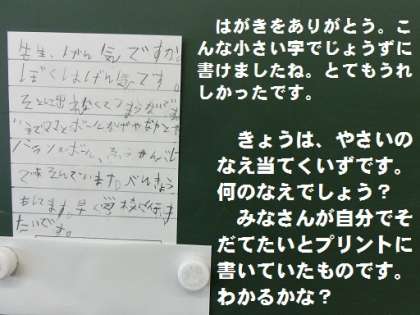 先生、げん気ですか。
ぼくはげん気です。
そとに出れなくてつまらないです
でボールなげやなわとび
バランスボール、ふうせんも
であそんでいます。べんきょう
もしてます。早く学校に行き
たいです。
はがきをありがとう。こ
んな小さい字でじょうずに
書けましたね。とてもうれ
しかったです。
きょうは、やさいの
なえ当てくいずです。
何のなえでしょう？
みなさんが自分でそ
だてたいとプリントに
書いていたものです。
わかるかな？